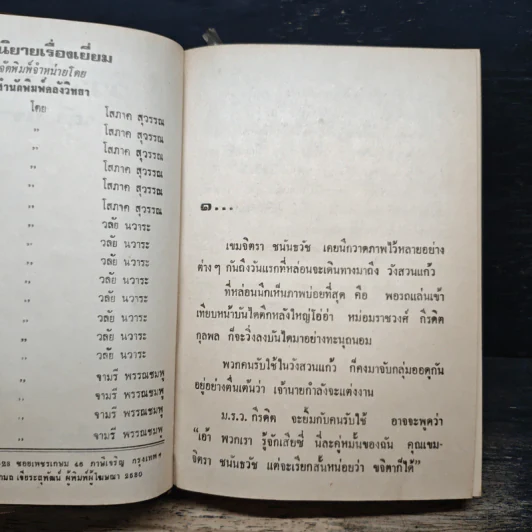 นิยายเรื่องเยี่ยม
จัดพิมพ์จำหน่ายโดย
สำนักพิมพ์คลังวิทยา
โดย โสภาค สุวรรณ
" โสภาค สุวรรณ
" โสภาค สุวรรณ
" โสภาค สุวรรณ
" โสภาค สุวรรณ
" โสภาค สุวรรณ
" วลัย นวาระ
" วลัย นวาระ
" วลัย นวาระ
" วลัย นวาระ
" วลัย นวาระ
" วลัย นวาระ
" วลัย นวาระ
" วลัย นวาระ
" จามรี พรรณชมพู
" จามรี พรรณชมพู
" จามรี พรรณชมพู
" จามรี พรรณชมพู
ซอยเพชรเกษม 46 ภาษีเจริญ กรุงเทพฯ
ผู้พิมพ์ผู้โฆษณา 2520
๑...
เขมจิตรา ชนันธวัช เคยนึกวาดภาพไว้หลายอย่าง
ต่างๆ กันถึงวันแรกที่หล่อนจะเดินทางมาถึง วังสวนแก้ว
ที่หล่อนนึกเห็นภาพบ่อยที่สุด คือ พอรถแล่นเข้า
เทียบหน้าบันไดตึกหลังใหญ่โอ่อ่า หม่อมราชวงศ์ กีรติต
กุลพล ก็จะวิ่งลงบันไดมาอย่างทะนุถนอม
พวกคนรับใช้ในวังสวนแก้ว ก็คงมาจับกลุ่มออดูกัน
อยู่อย่างตื่นเต้นว่า เจ้านายกำลังจะแต่งงาน
ม.ร.ว. กีรติต จะยิ้มกับคนรับใช้ อาจจะพูดว่า
"เอ้า พวกเรา รู้จักเสียซี่ นี่ละคู่หมั้นของฉัน คุณเขม-
จิตรา ชนันธวัช แต่จะเรียกสั้นหน่อยว่า ขจิตาก็ได้"